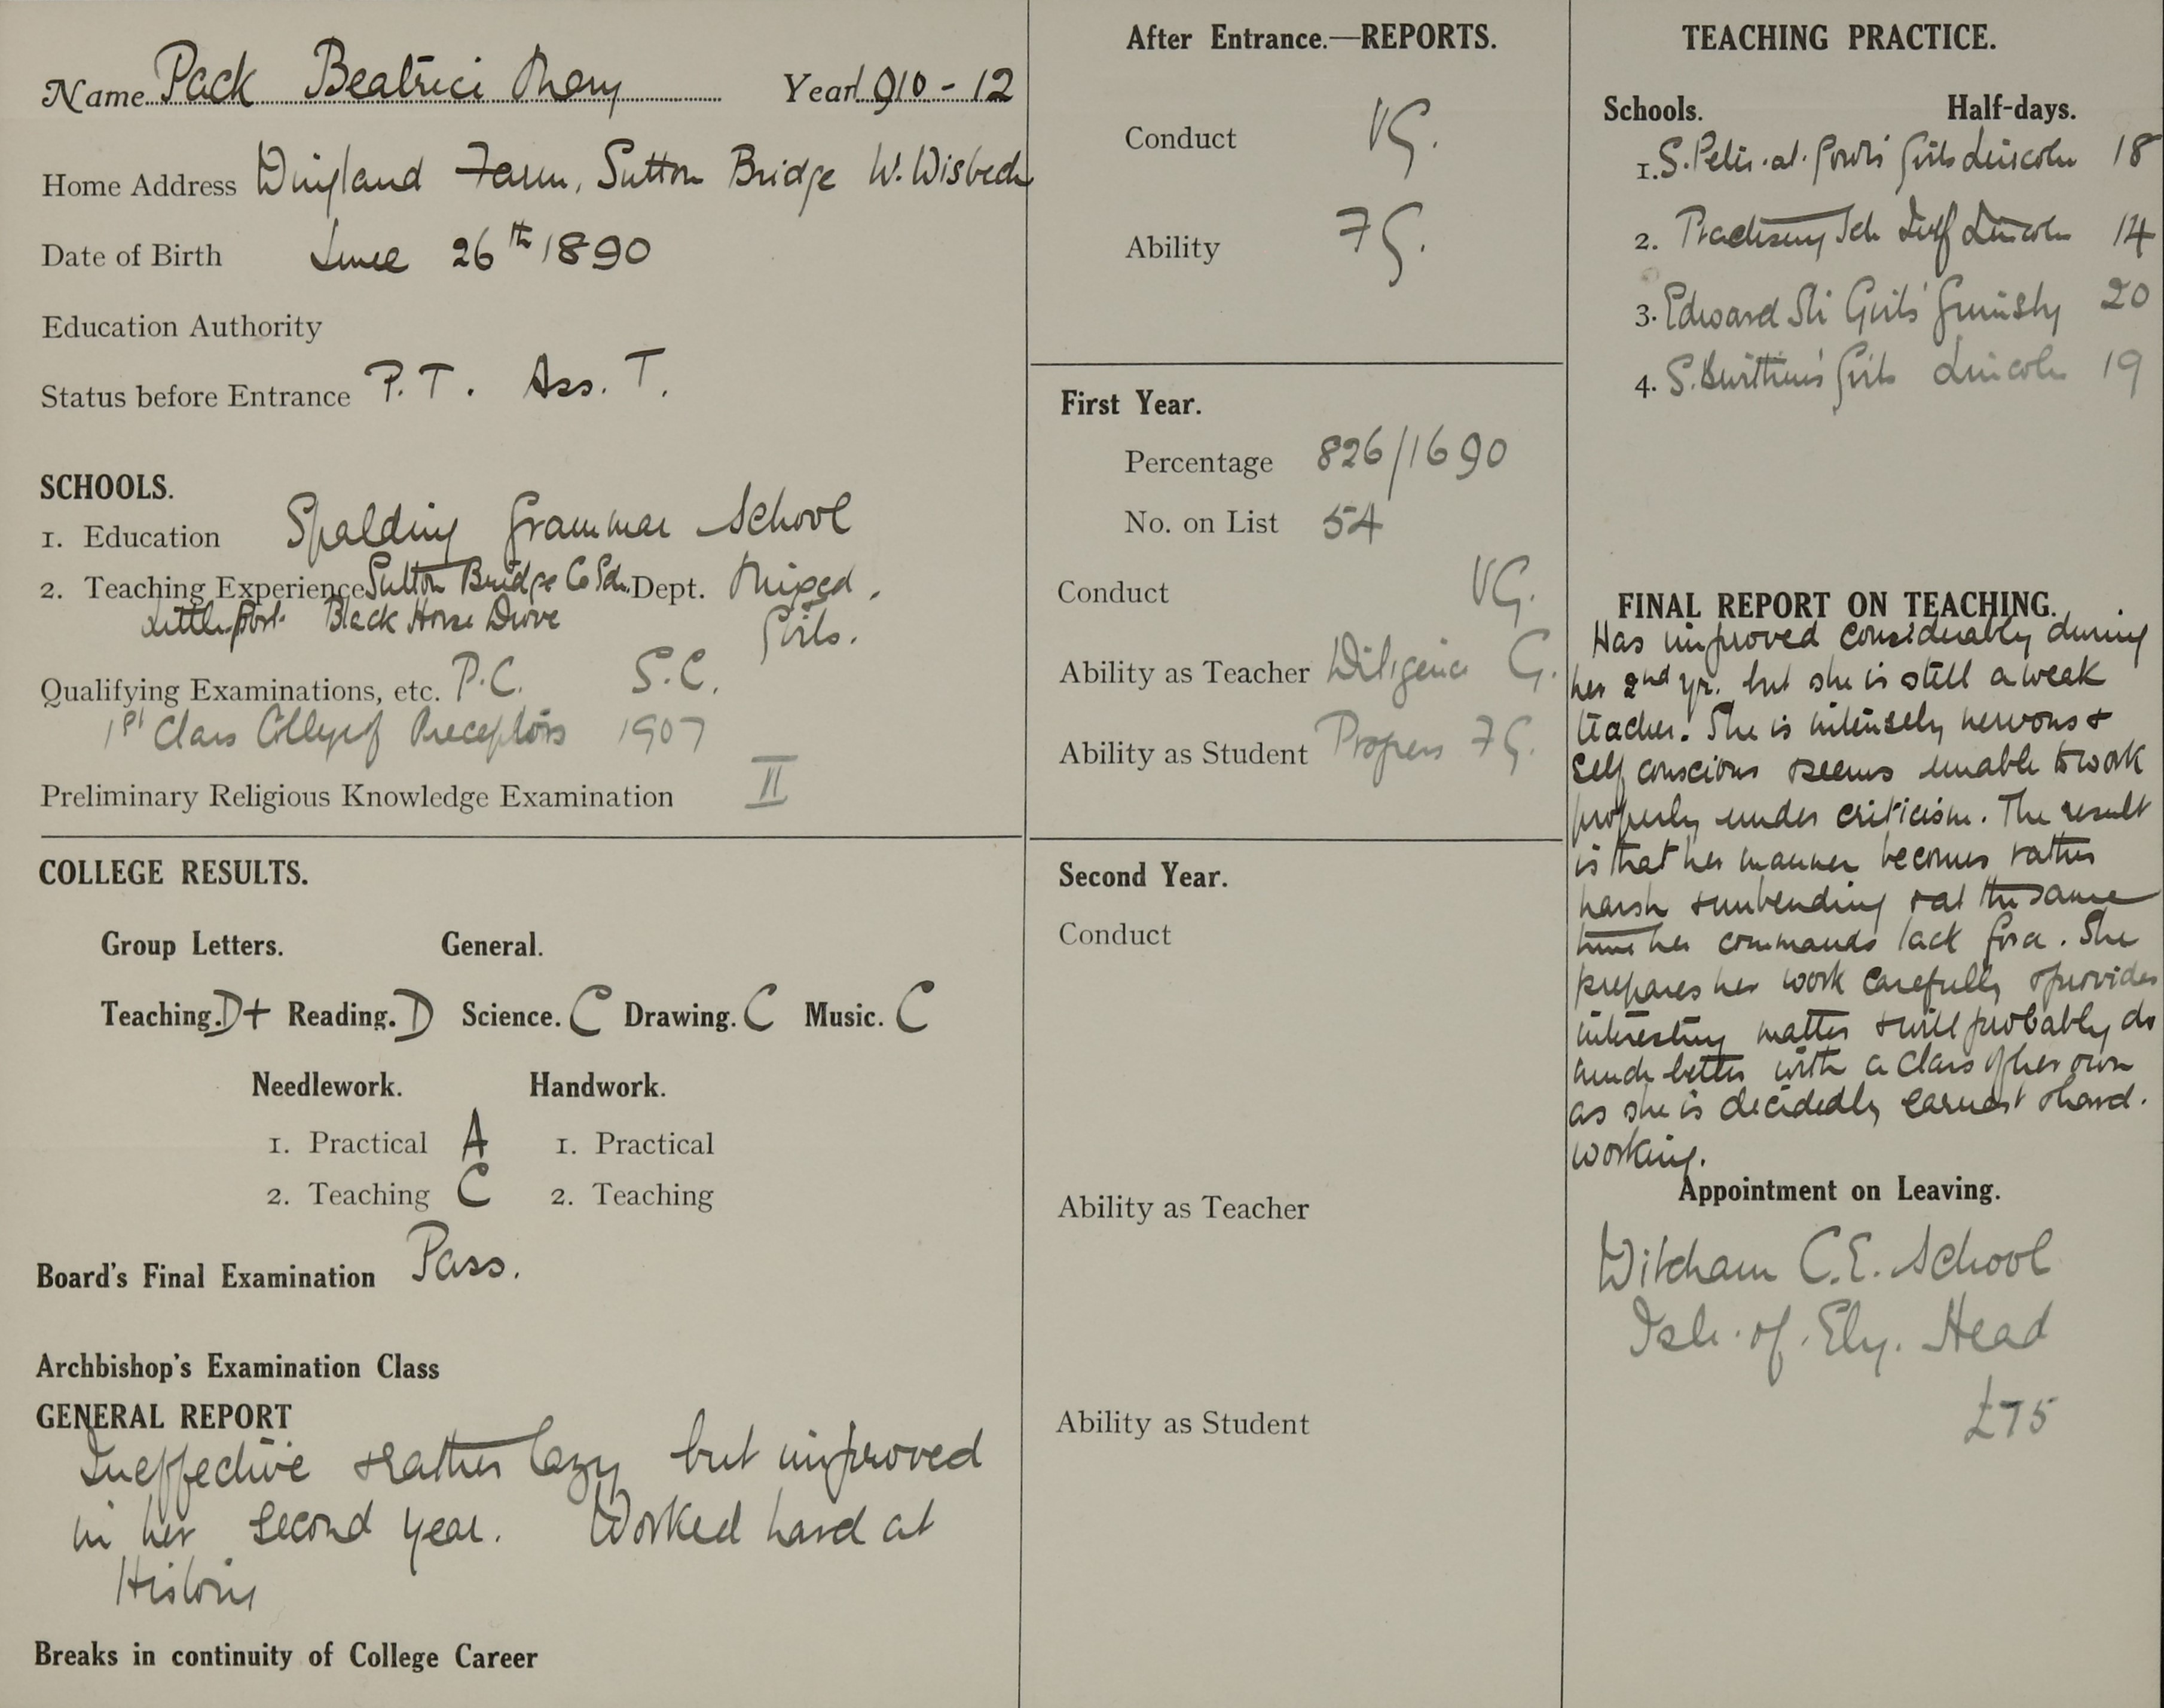 Name Pack Beatrice Mary Year 1910 - 12
Home Address Wingland Farm, Sutton Bridge W. Wisbech
Date of Birth June 26th 1890
Education Authority
Status before Entrance P.T. Ass. T.
SCHOOLS.
1. Education Spalding Grammar School
2. Teaching Experience Sutton Bridge Co Sch. Dept. Mixed.
Littleport Black Horse Drove Girls.
Qualifying Examinations, etc. P.C. S.C.
1st Class College of Preceptors 1907
Preliminary Religious Knowledge Examination II
COLLEGE RESULTS.
Group Letters. General.
Teaching. D+ Reading. D Science. C Drawing. C Music. C
Needlework. Handwork.
1. Practical A 1. Practical
2. Teaching C 2. Teaching
Board's Final Examination Pass.
Archbishop's Examination Class
GENERAL REPORT
Ineffective & rather lazy but improved
in her second year. Worked hard at
History
Breaks in continuity of College Career
After Entrance.—REPORTS.
Conduct VG.
Ability FG.
First Year.
Percentage 826/1690
No. on List 54
Conduct VG.
Ability as Teacher Diligence G.
Ability as Student Progress FG.
Second Year.
Conduct
Ability as Teacher
Ability as Student
TEACHING PRACTICE.
Schools. Half-days.
1. S. Peter-at-Gowts Girls Lincoln 18
2. Practising Sch Lincoln 14
3. Edward St Girls' Grimsby 20
4. S. Swithin's Girls Lincoln 19
FINAL REPORT ON TEACHING.
Has improved considerably during
her 2nd yr. but she is still a weak
teacher. She is intensely nervous &
self conscious & seems unable to work
properly under criticism. The result
is that her manner becomes rather
harsh & unbending & at the same
time her commands lack force. She
prepares her work carefully & provides
interesting matter & will probably do
much better with a class of her own
as she is decidedly earnest & hard.
working.
Appointment on Leaving.
Witcham C.E. School
Isle of Ely. Head
£75